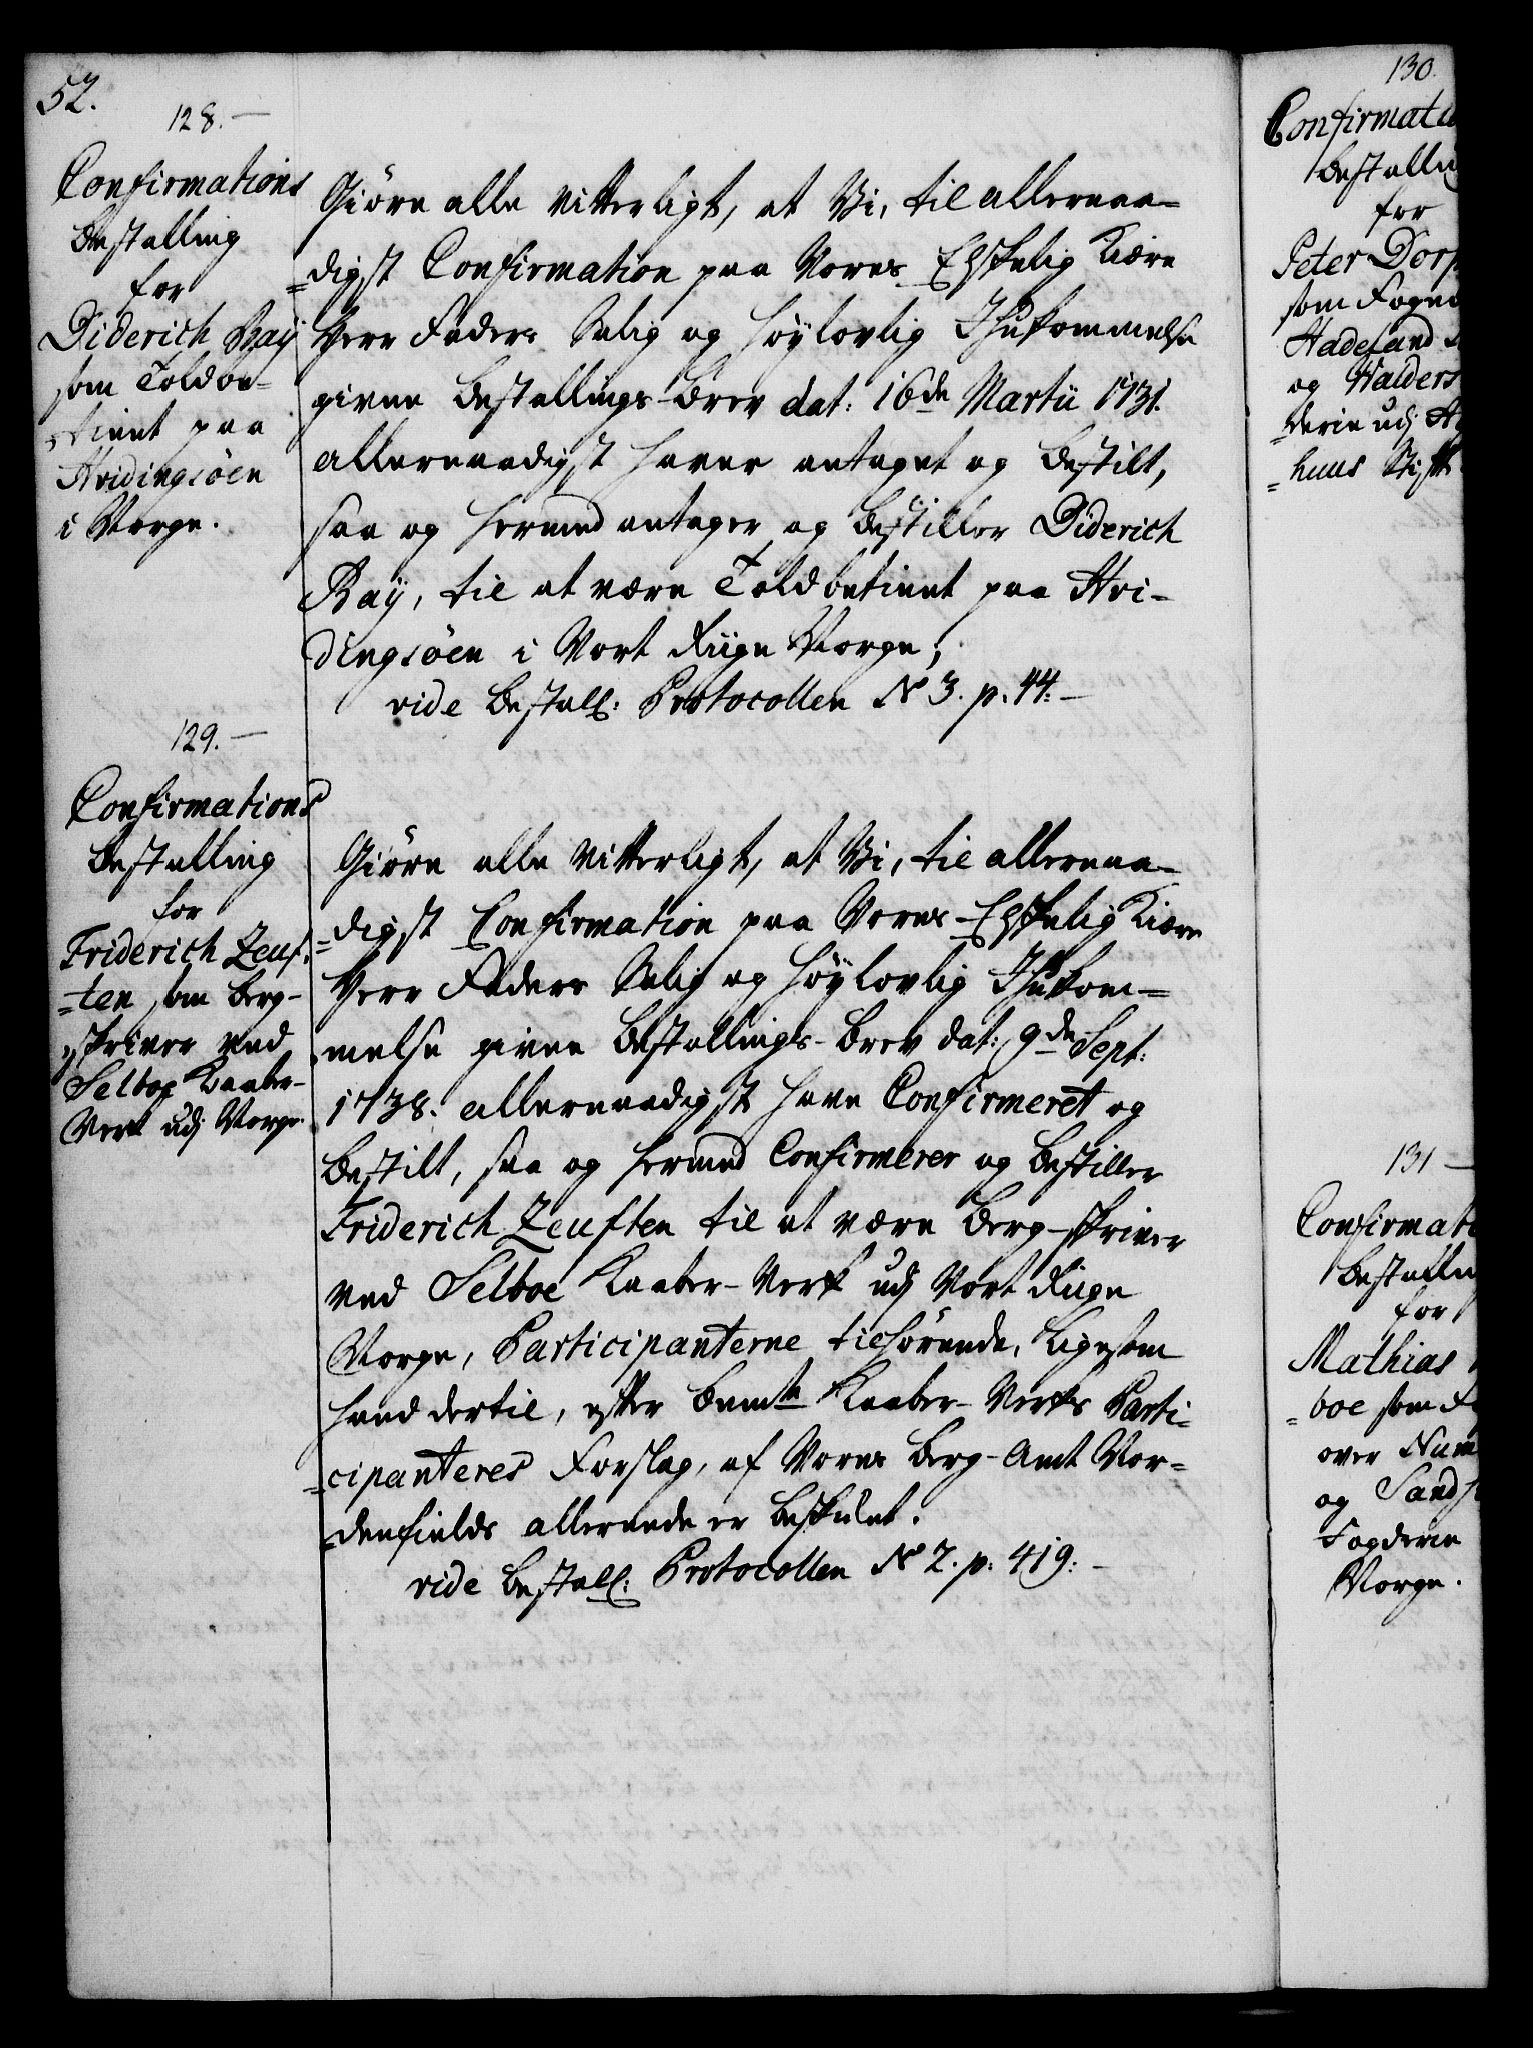 52.
128.—
Confirmations
Bestalling
for
Diderich Baÿ
som Toldbe-
tient paa
Hvidingsöen
i Norge.
Giöre alle vitterligt, at Vi, til allernaa-
=digst Confirmation paa Vores Elskelig Kiære
Herr Faders Salig og Höylovlig Ihukommelse
givne Bestallings-Brev dat: 16de Martii 1731.
allernaadigst haver antaget og bestilt,
saa og hermed antager og bestiller Diderich
Baÿ, til at være Toldbetient paa Hvi-
dingsöen i Vort Riige Norge;
vide Bestall: Protocollen No 3. p. 44.—
129.—
Confirmations
Bestalling
for
Friderich Zeuf-
=ten som Berg-
skriver ved
Selboe Kaaber-
Verk udj Norge.
Giöre alle vitterligt, at Vi, til allernaa-
=digst Confirmation paa Vores Elskelig Kiære
Herr Faders Salig og Höylovlig Ihukom-
melse givne Bestallings-Brev dat: 9de Sept:
1738. allernaadigst have Confirmeret og
bestilt, saa og hermed Confirmerer og bestiller
Friderich Zeuften til at være Berg-skriver
ved Selboe Kaaber-Verk udj Vort Riige
Norge, Participanterne tilhörende, ligesom
hand dertil, efter bemte Kaaber-Verks Parti-
=cipanteres Forslag, af Vores Berg-Amt Nor-
=denfields allerede er beskiket.
vide Bestall: Protocollen No 2. p: 419.—
130.
Confirmatio
Bestalling
for
Peter Dorp
som Foged
Hadeland
og Walders
=derie udj A
=huus Stift
131—
Confirmati
Bestalling
for
Mathias
=boe som Fo
over Num
og Sands
Fogderie
Norge.